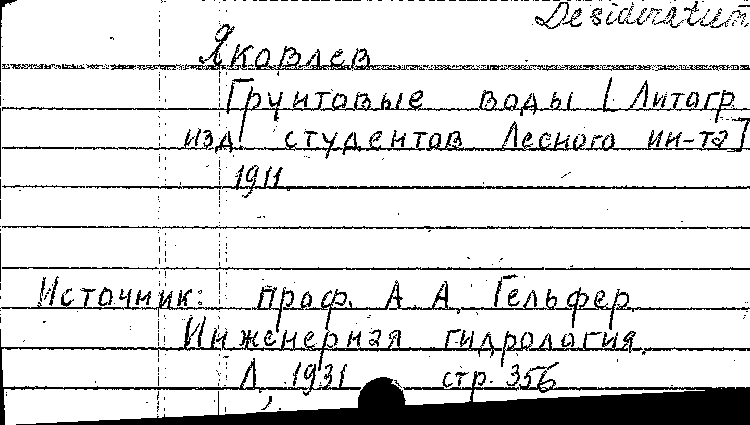 Desideratum
Яковлев
Грунтовые воды [Литогр.
изд. студентов Лесного ин-та]
1911.
Источник: проф. А. А. Гельфер.
Инженерная гидрология.
Л., 1931 стр. 356